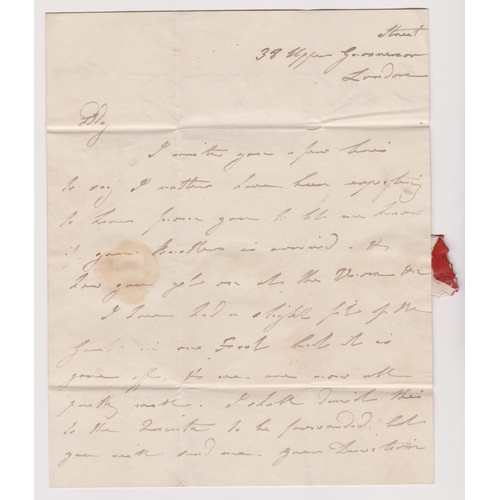 Street
38 Upper Grosvenor
London
I write you a few lines
to say I rather have been expecting
to hear from you to let me know
if your Brother is arrived &
how you get on at the
I have had a slight fit of the
Gout in one Foot but it is
gone off. & we are now all
pretty well. I shall direct this
to the to be forwarded but
you will send me your Direction